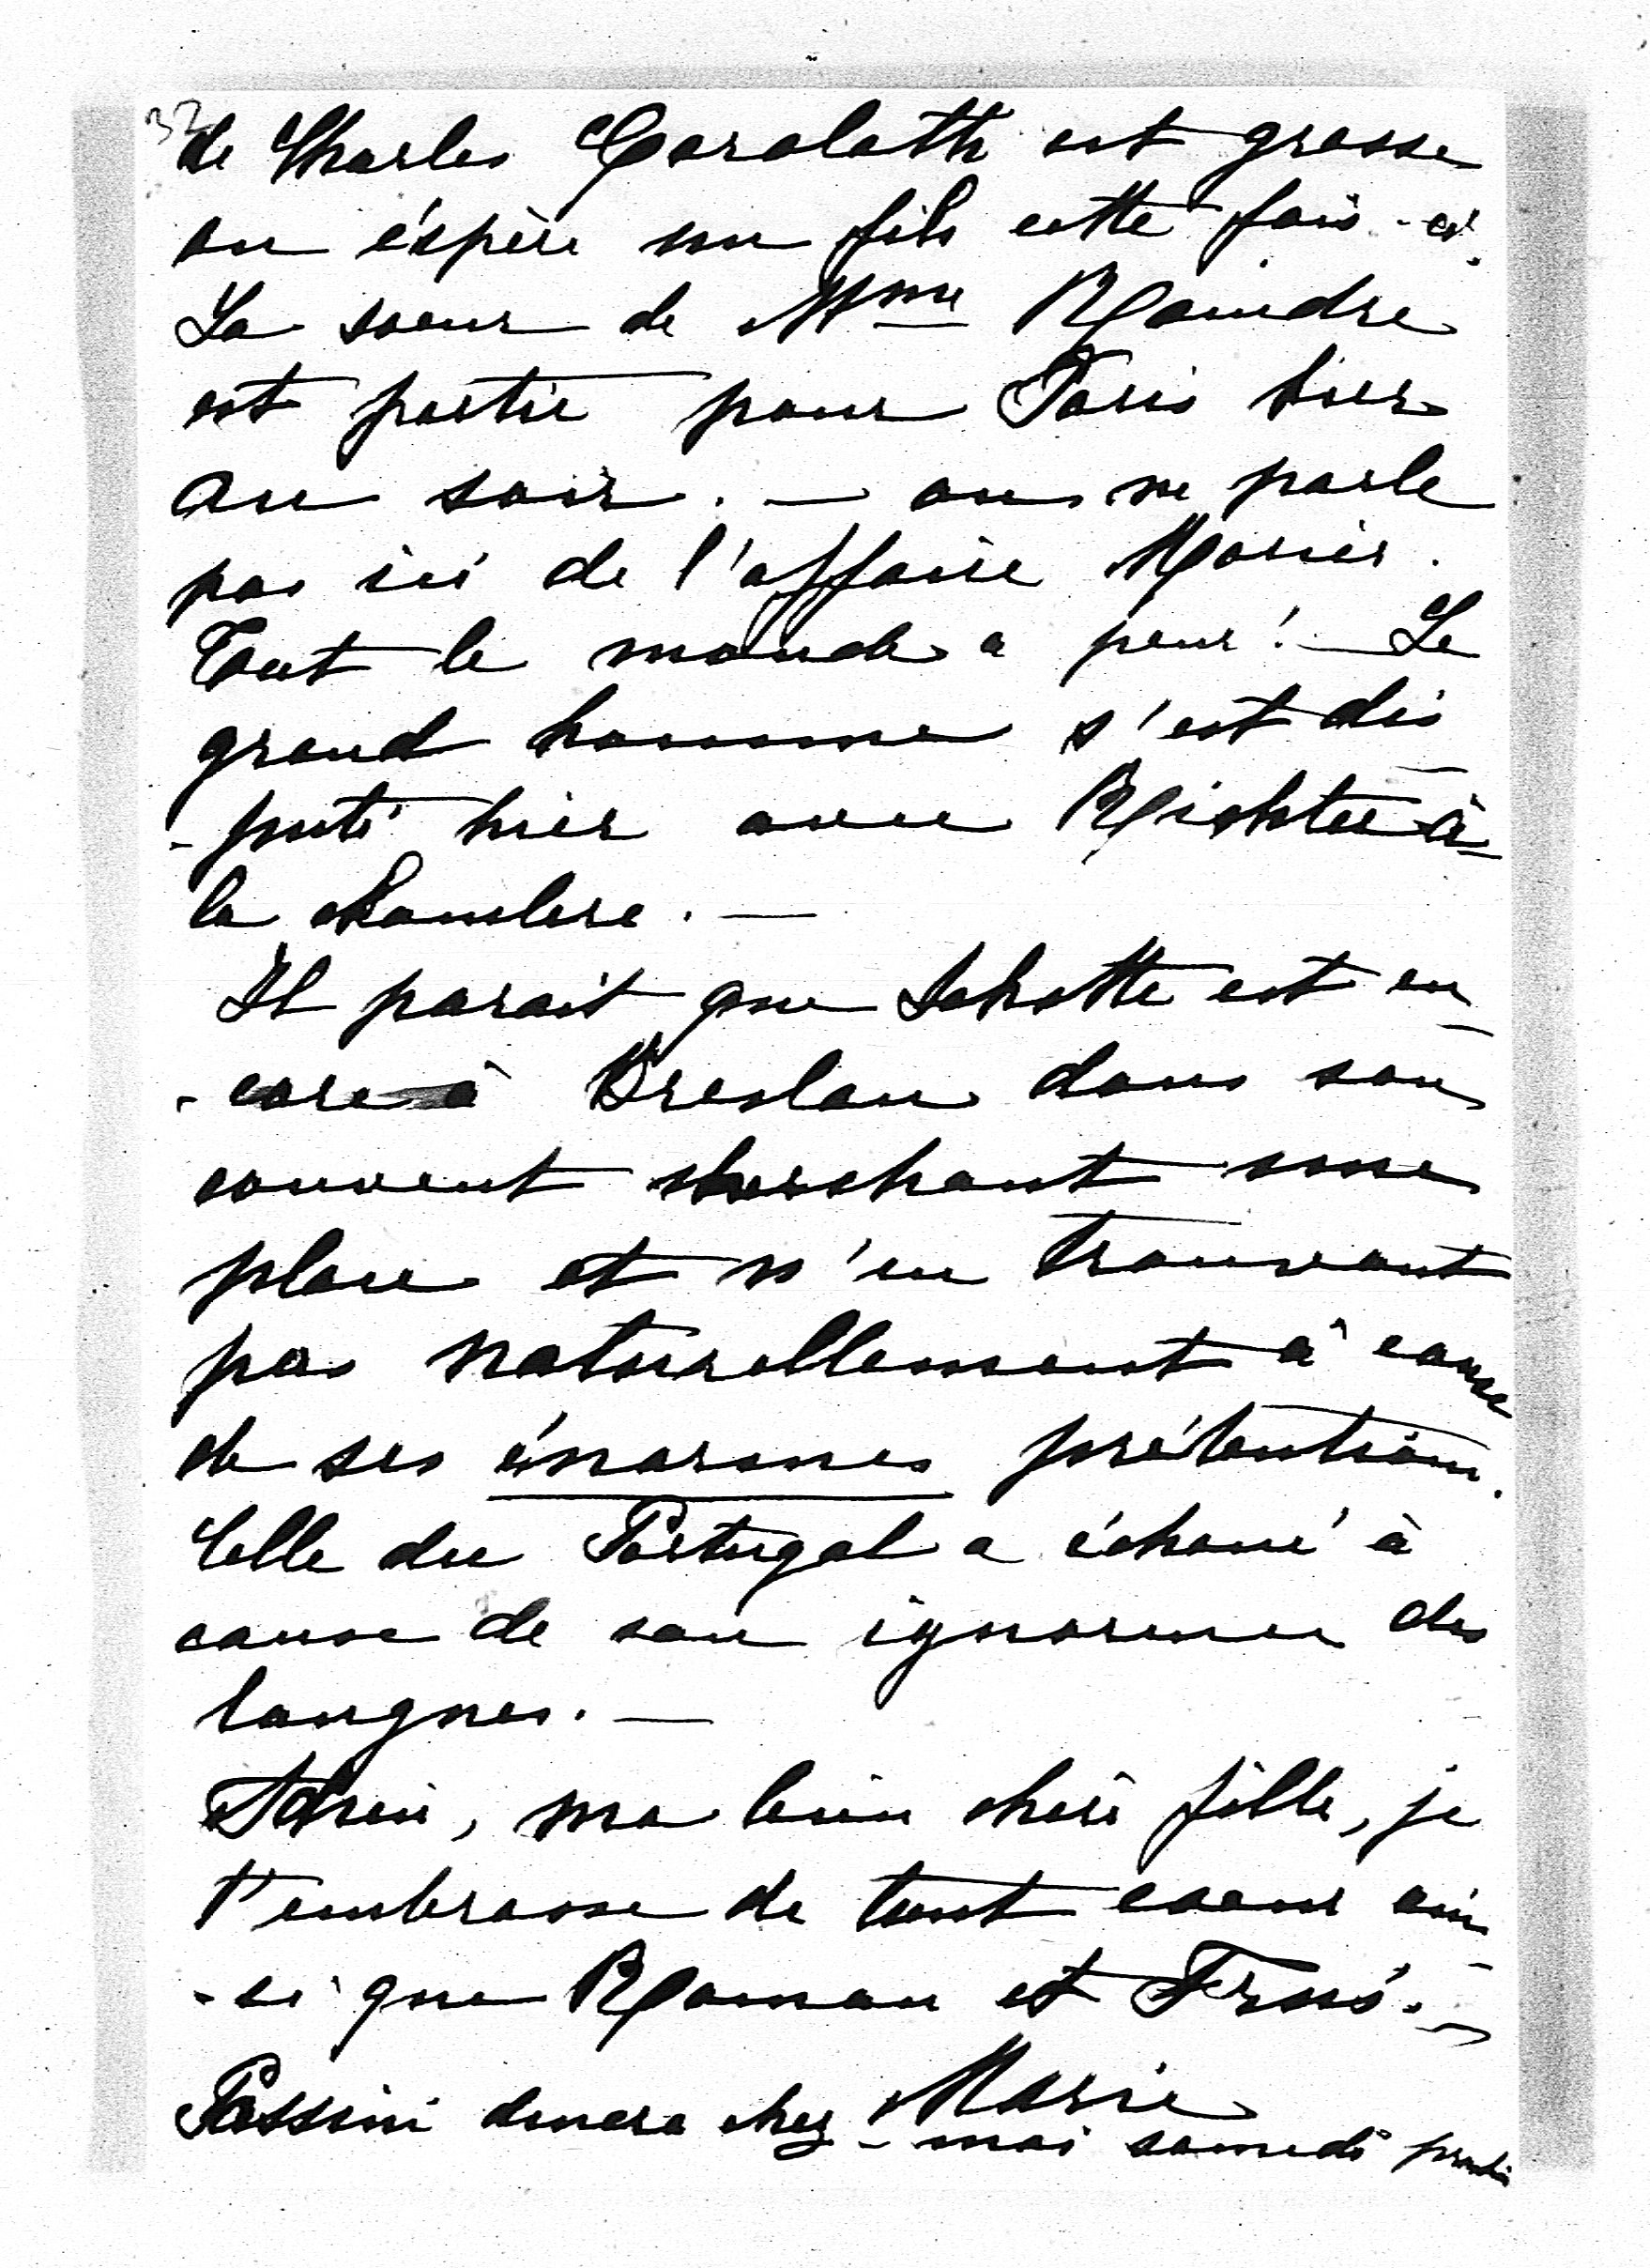 32
de Charles Carolath est grosse
on éspère un fils cette fois-ci.
La soeur de Mme Raindre
est partie pour Paris hier
au soir. — on ne parle
pas ici de l'affaire Morier.
Tout le monde a peur! — Le
grand homme s'est dis
-puté hier avec Richter à
la chambre. —
Il parait que Schotte est en
-core à Breslau dans son
couvent cherchant une
place et n'en trouvant
pas naturellement à cause
de ses énormes prétentions.
Celle du Portugal a échoué à
cause de son ignorance des
langues. —
Adieu, ma bien chère fille, je
t'embrasse de tout coeur ain
-si que Roman et
Marie
Passini dinera chez moi samedi